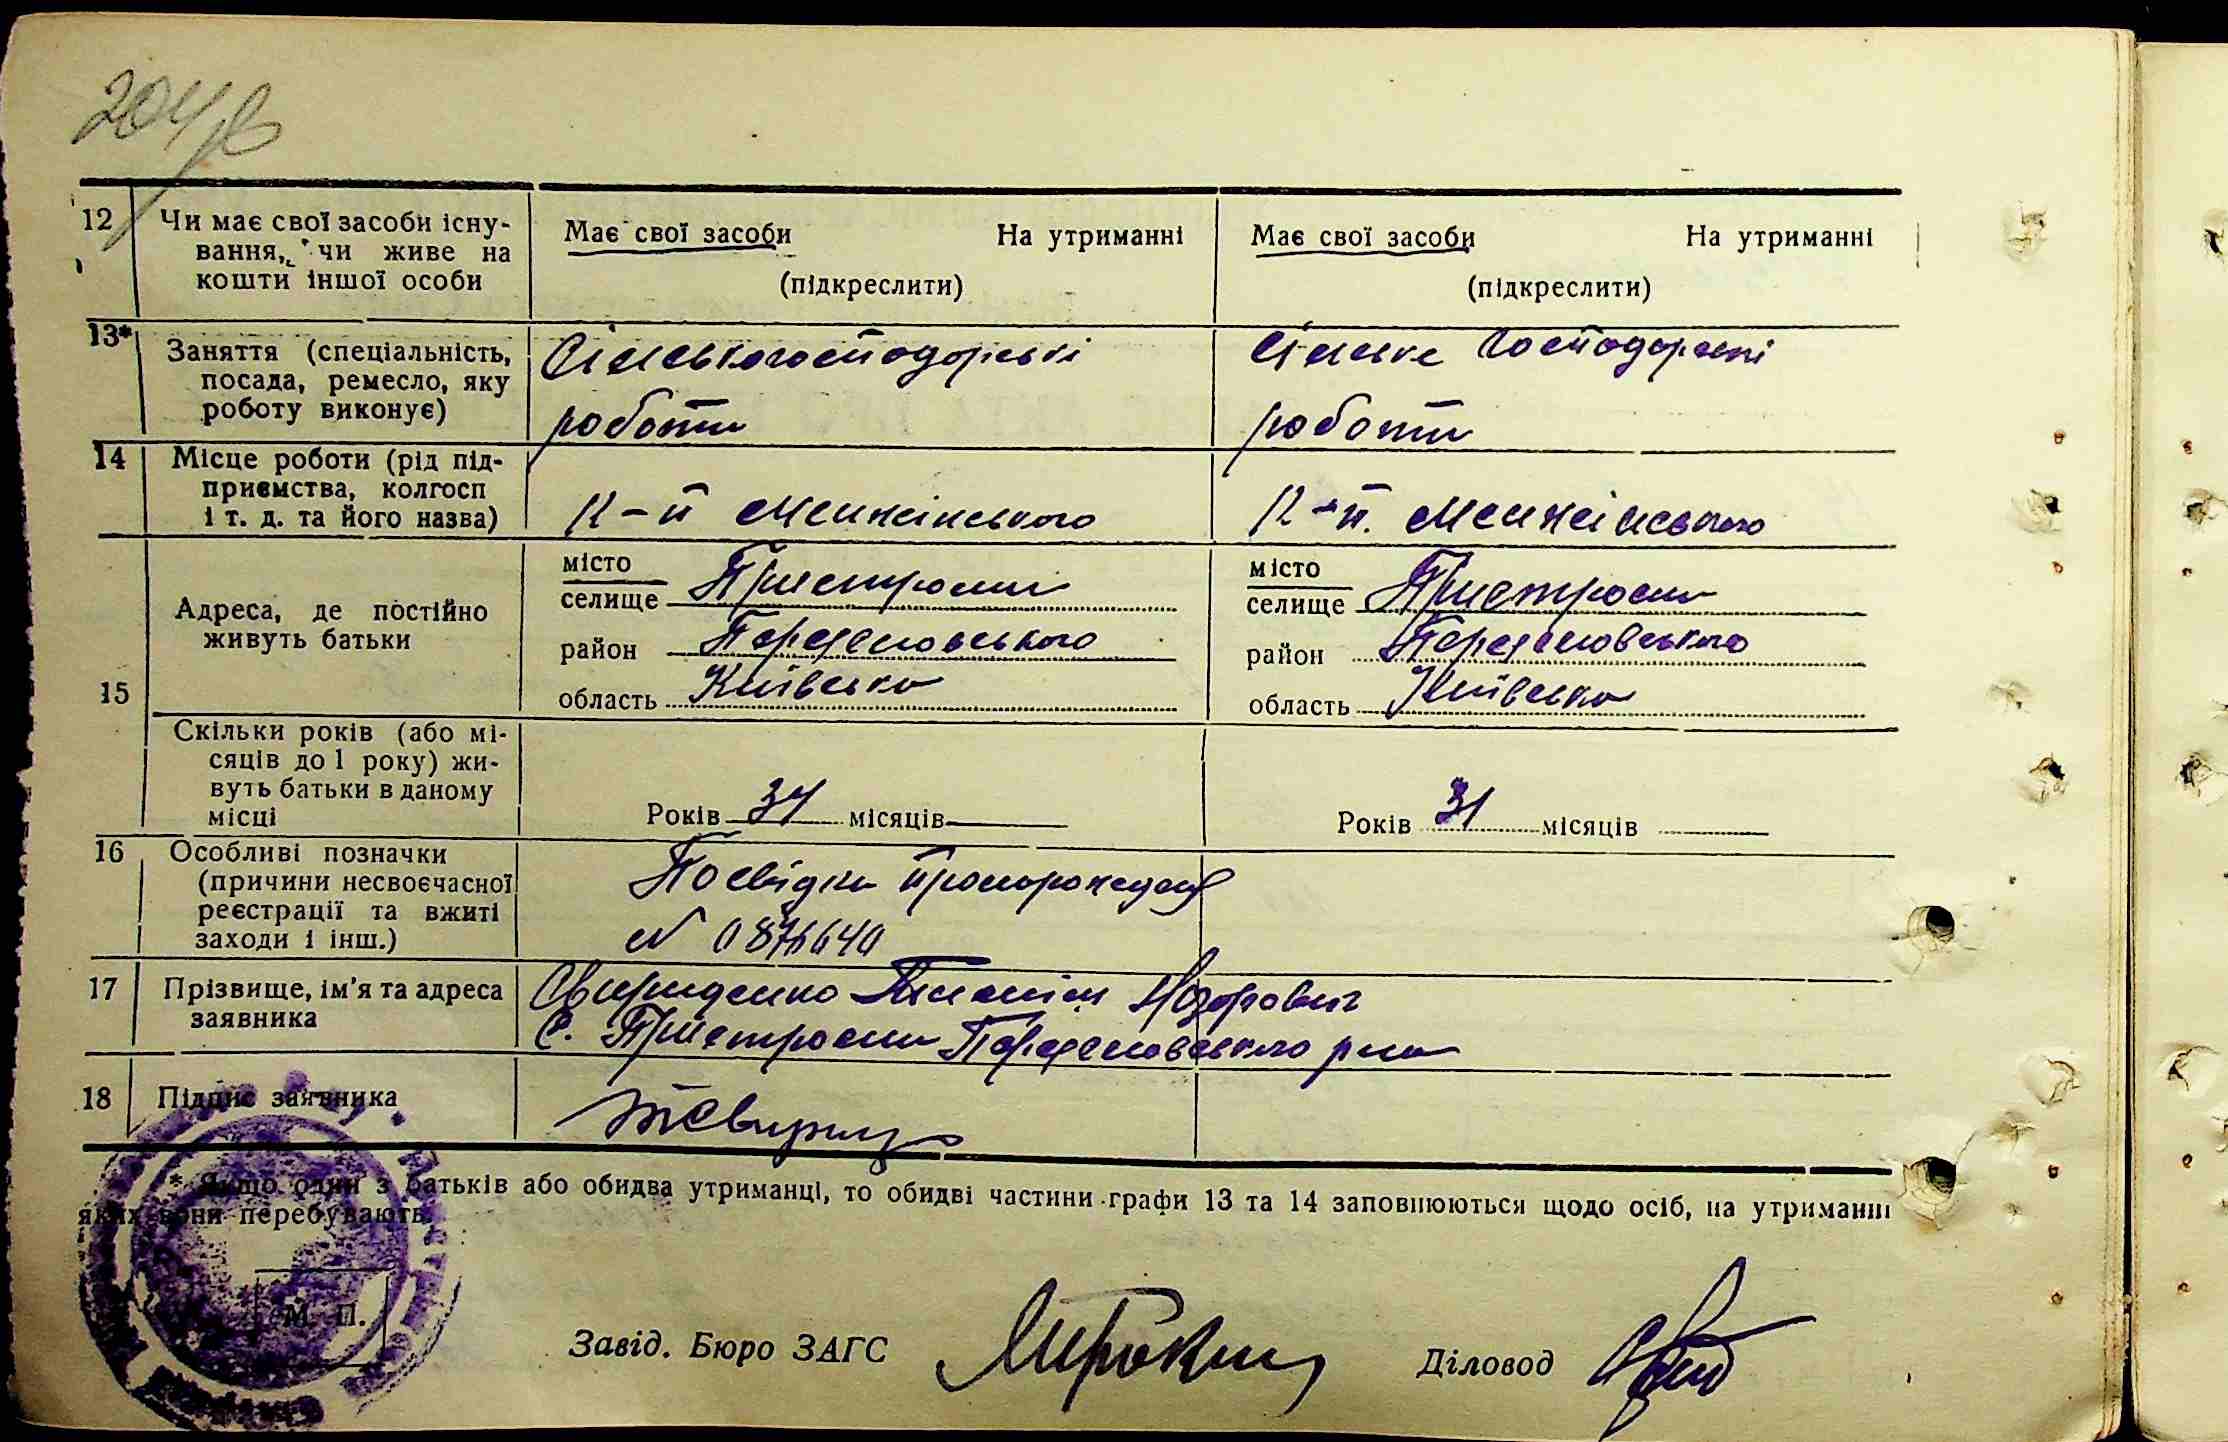 204
12 Чи має свої засоби існу-
вання, чи живе на
кошти іншої особи
Має свої засоби На утриманні
(підкреслити)
Має свої засоби На утриманні
(підкреслити)
13* Заняття (спеціальність,
посада, ремесло, яку
роботу виконує)
Сільськогосподарські
роботи
Сільське господарські
роботи
14 Місце роботи (рід під-
приємства, колгосп
і т. д. та його назва)
К-п Менжінського
К-п. Менжінського
15 Адреса, де постійно
живуть батьки
місто
селище Пристроми
район Переяславського
область Київська
місто
селище Пристроми
район Переяславського
область Київська
Скільки років (або мі-
сяців до 1 року) жи-
вуть батьки в даному
місці
Років 34 місяців
Років 31 місяців
16 Особливі позначки
(причини несвоєчасної
реєстрації та вжиті
заходи і інш.)
Посвідка
N
17 Прізвище, ім'я та адреса
заявника
Свириденко
с. Пристроми Переяславського р-на
18 Підпис заявника
* Якщо один з батьків або обидва утриманці, то обидві частини графи 13 та 14 заповнюються щодо осіб, на утриманні
яких вони перебувають.
М. П.
Завід. Бюро ЗАГС
Діловод